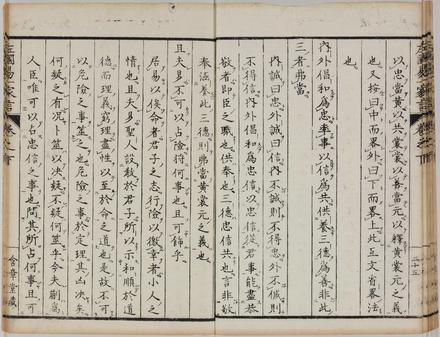 以忠當黃以共當裳以善當元以釋黃裳元之義
也又按曰中而畧外曰下而畧上此互文省畧法
也
外內倡和爲忠率事以信爲共供養三德爲善非此
三者弗當
內誠曰忠外誠曰信內不誠則不得忠外不誠則
不得信內外倡和爲忠信以忠信從君事能盡恭
敬者即臣之職也供奉也三德忠信共也言非敬
奉涵養此三德則弗當黃裳元之義也
且夫易不可以占險將何事也且可飾乎
居易以俟命者君子之志行險以徼幸者小人之
情也且夫易聖人設教於君子所以示和順於道
德而理義窮理盡性以至於命之道也是故不可
以危險之事筮之也危險之事於定理其凶決矣
何疑之有況卜筮以決疑不疑何筮乎今夫蒯爲
人臣唯可以占忠信之事也問其所占何事且可
含章堂藏